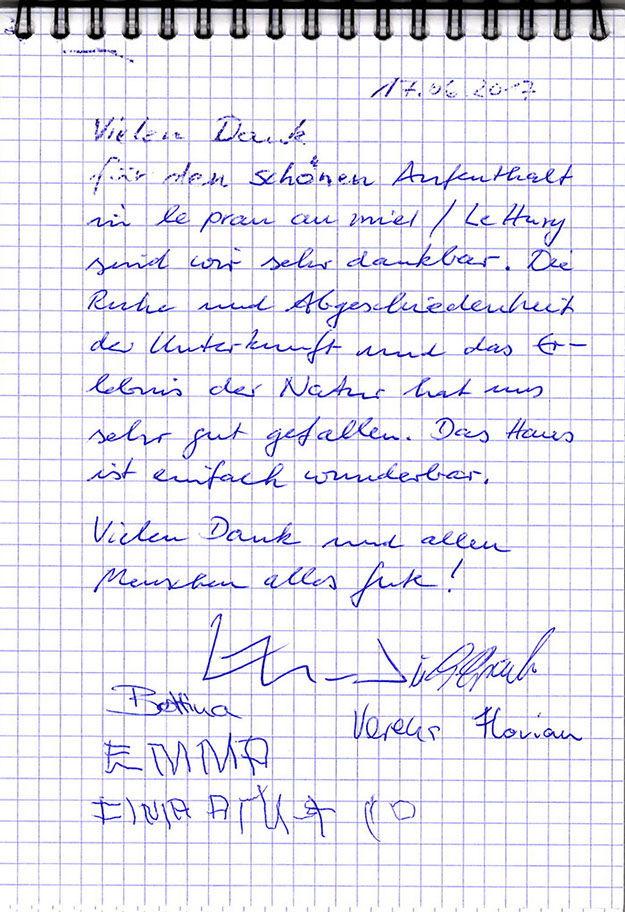 17.06.2017
Vielen Dank
für den schönen Aufenthalt
in le prau au miel / Le Hary
sind wir sehr dankbar. Die
Ruhe und Abgeschiedenheit
der Unterkunft und das Er-
lebnis der Natur hat uns
sehr gut gefallen. Das Haus
ist einfach wunderbar.
Vielen Dank und allen
Menschen alles Gute!
Bettina
Florian
EMMA